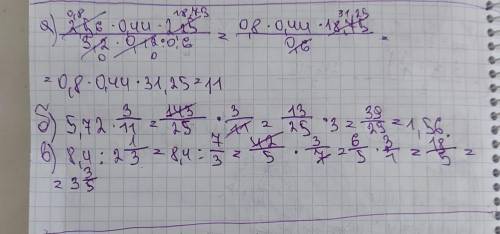 0,8 18,75 31,25
а) 2,56 · 0,44 · 2,25 / 3,2 · 0,12 · 0,6 = 0,8 · 0,44 · 18,75 / 0,6 =
0 0
= 0,8 · 0,44 · 31,25 = 11
б) 5,72 · 3/11 = 143/25 · 3/11 = 13/25 · 3 = 39/25 = 1,56.
в) 8,4 : 2 1/3 = 8,4 : 7/3 = 42/5 · 3/7 = 6/5 · 3/1 = 18/5 =
= 3 3/5